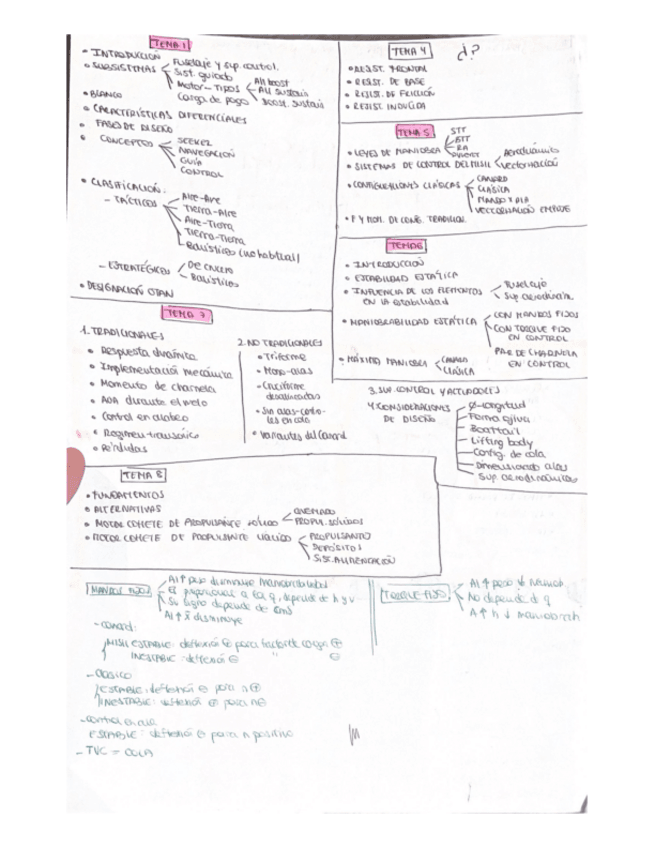 TEMA 1
• INTRODUCCIÓN
• SUBSISTEMAS
Fuselaje y sup. control.
Sist. guiado
Motor - TIPOS
All boost
All sustain
Boost. sustain
Carga de pago
• BLANCO
• CARACTERÍSTICAS DIFERENCIALES
• FASES DE DISEÑO
• CONCEPTOS
SEEKER
NAVEGACIÓN
GUÍA
CONTROL
• CLASIFICACIÓN.
- TÁCTICOS
Aire-Aire
Tierra-Aire
Aire-Tierra
Tierra-Tierra
Balístico (no habitual)
- ESTRATÉGICOS
De crucero
Balísticos
• DESIGNACIÓN OTAN
TEMA 4 ¿?
• RESIST. FRONTAL
• RESIST. DE BASE
• RESIST. DE FRICCIÓN
• RESIST. INDUCIDA
TEMA 5
• LEYES DE MANIOBRA
STT
BTT
RA
• SISTEMAS DE CONTROL DEL MISIL
Aerodinámico
Vectorización
• CONFIGURACIONES CLÁSICAS
CANARD
CLÁSICA
MANDO X ALA
VECTORIZACIÓN EMPUJE
• F Y MOM. DE CONF. TRADICIONAL
TEMA 6
• INTRODUCCIÓN
• ESTABILIDAD ESTÁTICA
• INFLUENCIA DE LOS ELEMENTOS
EN LA estabilidad
Fuselaje
Sup aerodinám.
• MANIOBRABILIDAD ESTÁTICA
CON MANDOS FIJOS
CON TORQUE FIJO
EN CONTROL
PAR DE CHARNELA
EN CONTROL
• MÁXIMO MANIOBRA
CANARD
CLÁSICA
TEMA 7
1. TRADICIONALES
• Respuesta dinámica
• Implementación mecánica
• Momento de charnela
• AOA durante el vuelo
• Control en alabeo
• Regimen transónico
• Pérdidas
2. NO TRADICIONALES
• Triforme
• Mono-alas
• Cruciforme
desalineadas
• Sin alas-contro-
les en cola
• Variantes del Canard
3. SUP. CONTROL Y ACTUADORES
4. CONSIDERACIONES
DE DISEÑO
Ø-longitud
Forma ojiva
Boattail
Lifting body
Config. de cola
Dimensionado alas
Sup. aerodinámicas
TEMA 8
• FUNDAMENTOS
• ALTERNATIVAS
• MOTOR COHETE DE PROPULSANTE sólido
QUEMADO
PROPUL. SÓLIDOS
• MOTOR COHETE DE PROPULSANTE LÍQUIDO
PROPULSANTE
DEPÓSITOS
SIST. ALIMENTACIÓN
MANDOS FIJOS
Al ↑ peso disminuye maniobrabilidad
Es proporcional a la q, depende de h y v
Su signo depende de
Al ↑ x̄ disminuye
- Canard:
MISIL ESTABLE: deflexión ⊕ para factor de carga ⊕
INESTABLE: deflexión ⊖ " ⊖
- Clásico
ESTABLE: deflexión ⊖ para n ⊕
INESTABLE: deflexión ⊕ para n ⊖
- control en ala
ESTABLE: deflexión ⊕ para n positivo
- TVC = COLA
TORQUE FIJO
Al ↑ peso ↓ maniob
No depende de q